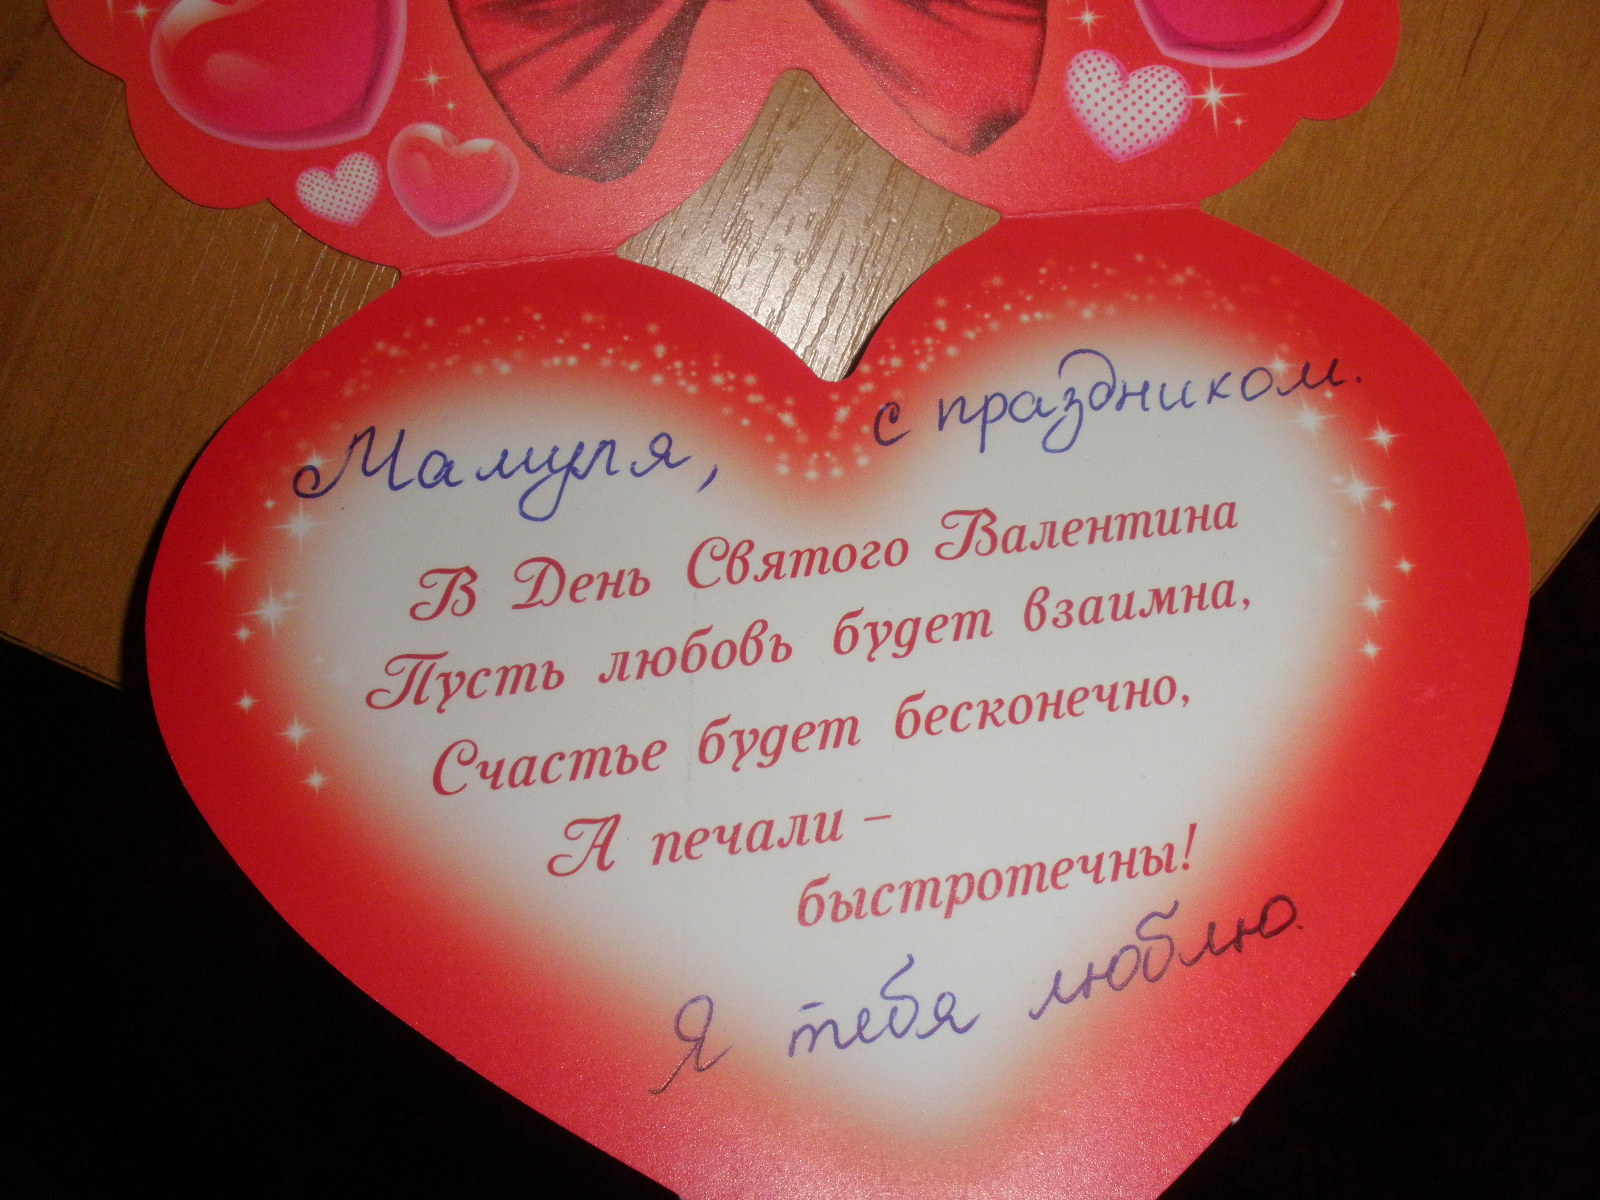 Мамуля, с праздником.
В День Святого Валентина
Пусть любовь будет взаимна,
Счастье будет бесконечно,
А печали –
быстротечны!
Я тебя люблю.